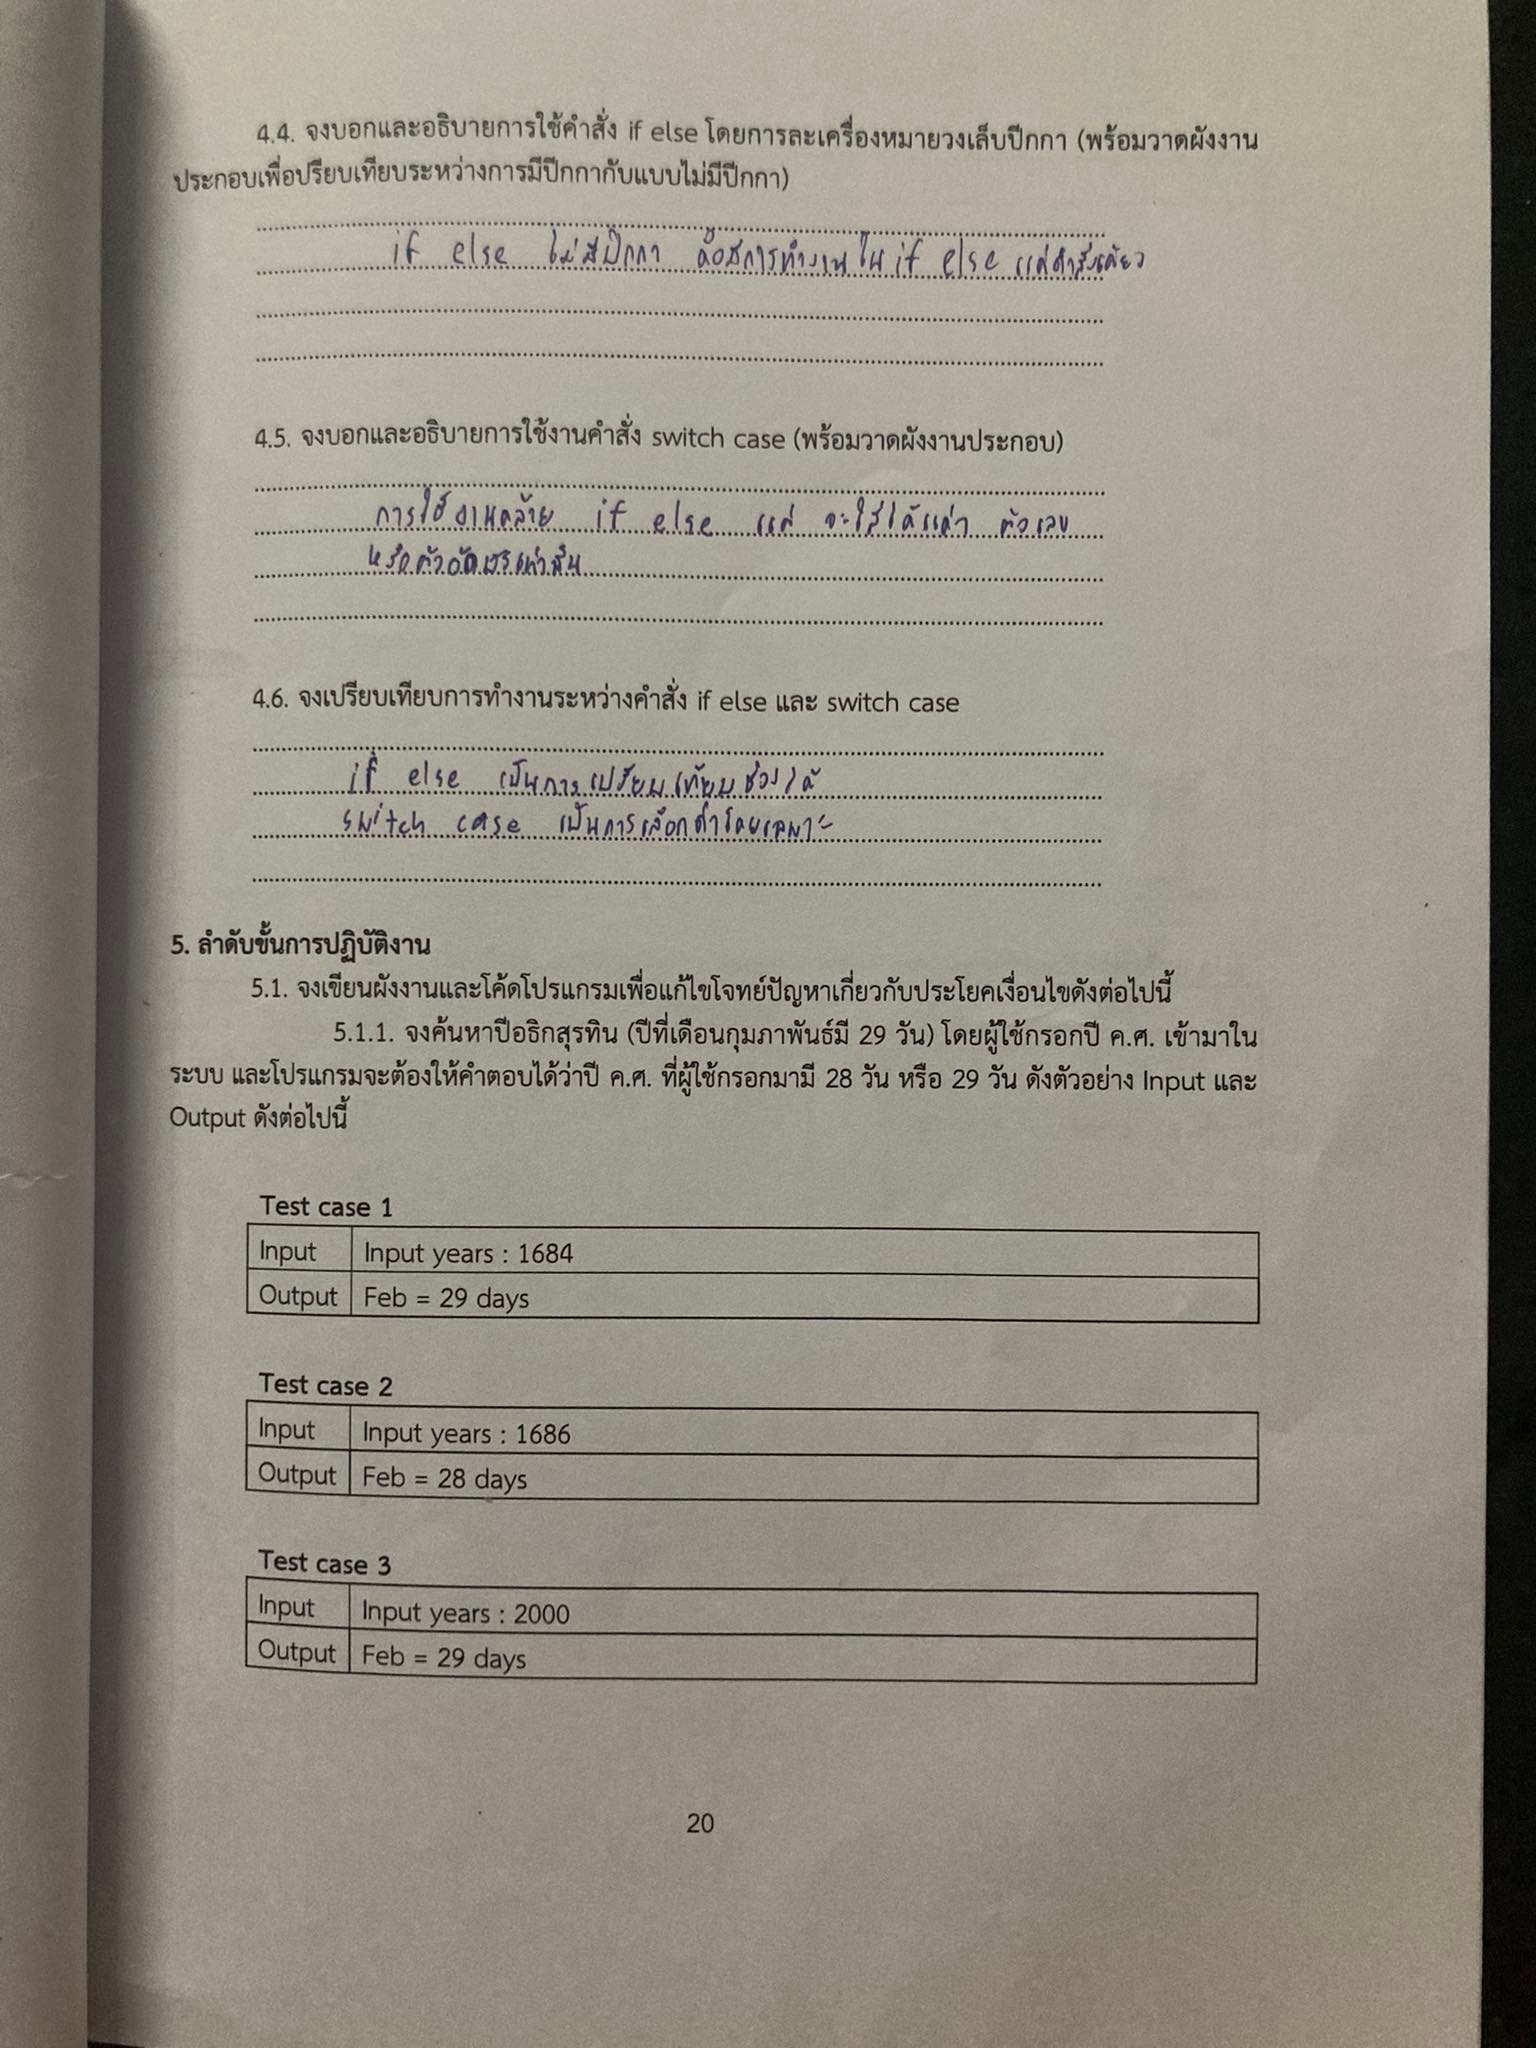 4.4. จงบอกและอธิบายการใช้คำสั่ง if else โดยการละเครื่องหมายวงเล็บปีกกา (พร้อมวาดผังงาน
ประกอบเพื่อปรียบเทียบระหว่างการมีปีกกากับแบบไม่มีปีกกา)
if else ไม่มีปีกกา คือมีการทำงานใน if else แค่คำสั่งเดียว
4.5. จงบอกและอธิบายการใช้งานคำสั่ง switch case (พร้อมวาดผังงานประกอบ)
การใช้งานคล้าย if else แต่ จะใส่ได้แค่ ตัวเลข
หรือตัวอักษรเท่านั้น
4.6. จงเปรียบเทียบการทำงานระหว่างคำสั่ง if else และ switch case
if else เป็นการเปรียบเทียบช่วงได้
switch case เป็นการเลือกค่าโดยเฉพาะ
5. ลำดับขั้นการปฏิบัติงาน
5.1. จงเขียนผังงานและโค้ดโปรแกรมเพื่อแก้ไขโจทย์ปัญหาเกี่ยวกับประโยคเงื่อนไขดังต่อไปนี้
5.1.1. จงค้นหาปีอธิกสุรทิน (ปีที่เดือนกุมภาพันธ์มี 29 วัน) โดยผู้ใช้กรอกปี ค.ศ. เข้ามาใน
ระบบ และโปรแกรมจะต้องให้คำตอบได้ว่าปี ค.ศ. ที่ผู้ใช้กรอกมามี 28 วัน หรือ 29 วัน ดังตัวอย่าง Input และ
Output ดังต่อไปนี้
Test case 1
Input Input years : 1684
Output Feb = 29 days
Test case 2
Input Input years : 1686
Output Feb = 28 days
Test case 3
Input Input years : 2000
Output Feb = 29 days
20